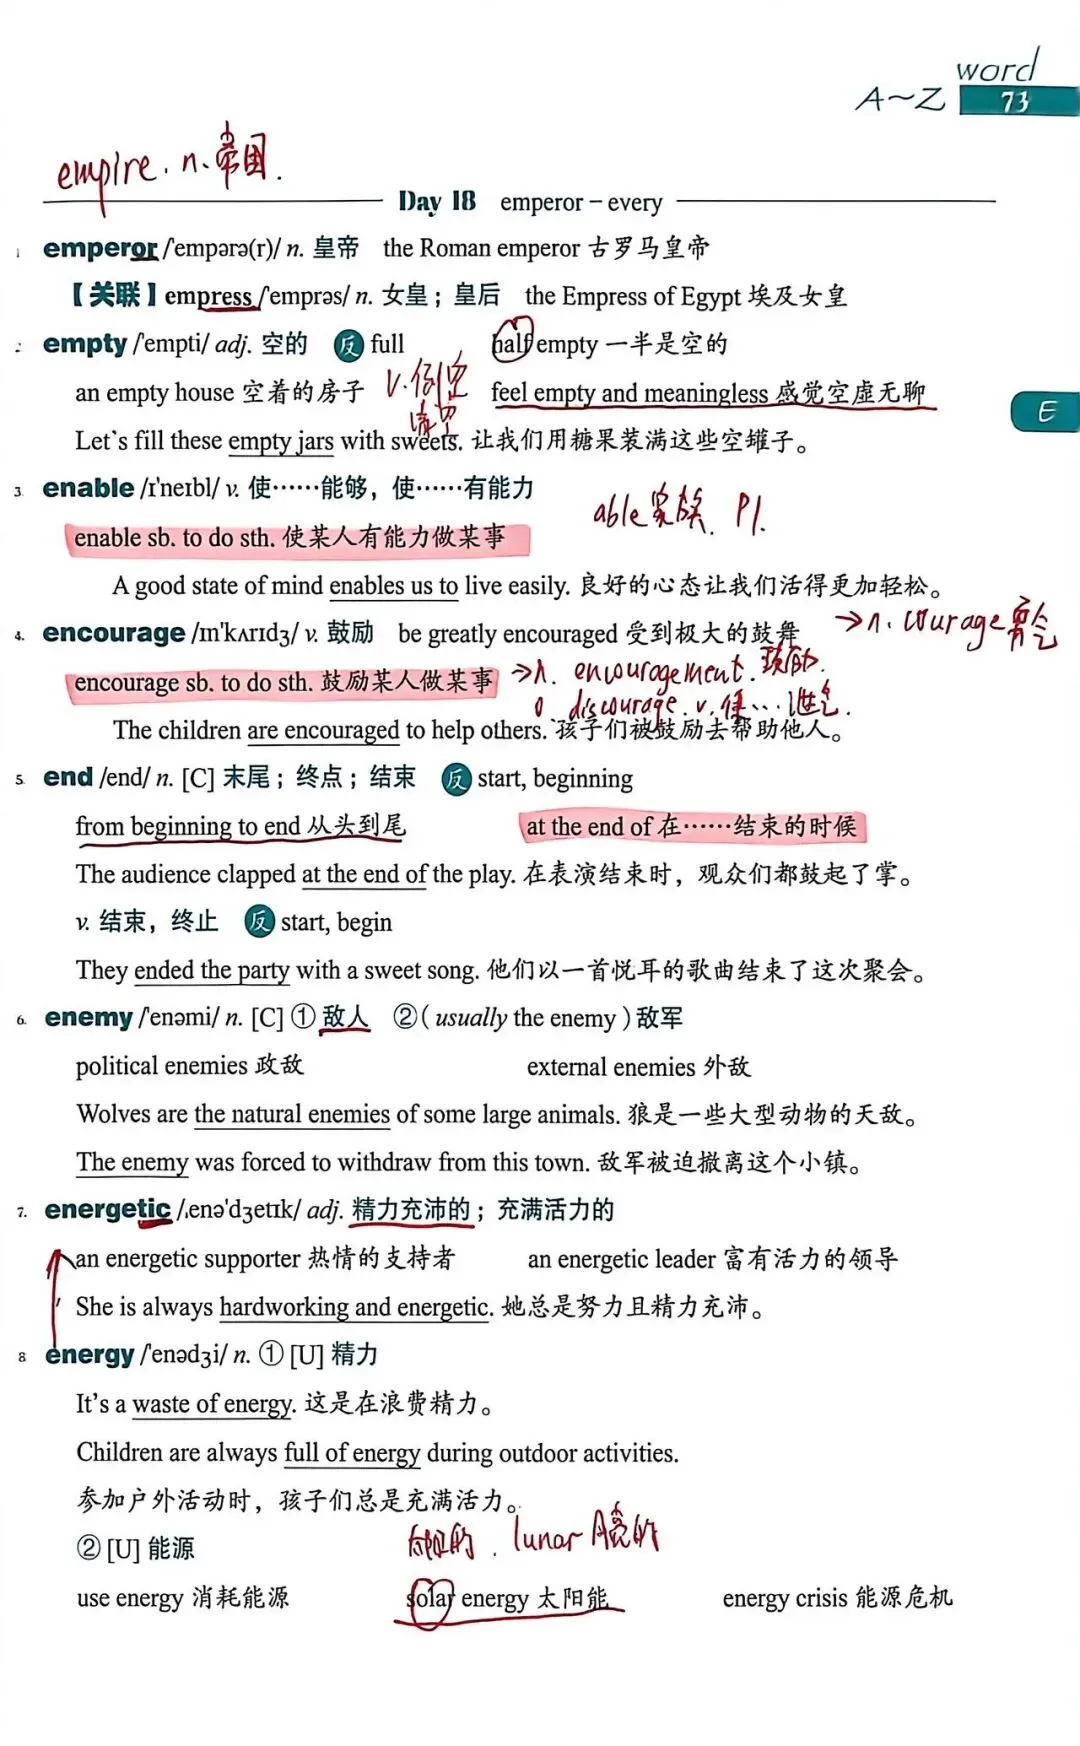 word
A～Z 73
empire. n. 帝国.
Day 18 emperor – every
1 emperor /'empərə(r)/ n. 皇帝 the Roman emperor 古罗马皇帝
【关联】empress /'emprəs/ n. 女皇；皇后 the Empress of Egypt 埃及女皇
2. empty /'empti/ adj. 空的 反 full half empty 一半是空的
an empty house 空着的房子 v. 倒空 feel empty and meaningless 感觉空虚无聊
清空
E
Let's fill these empty jars with sweets. 让我们用糖果装满这些空罐子。
3. enable /ɪ'neɪbl/ v. 使……能够，使……有能力
able家族. P1.
enable sb. to do sth. 使某人有能力做某事
A good state of mind enables us to live easily. 良好的心态让我们活得更加轻松。
4. encourage /ɪn'kʌrɪdʒ/ v. 鼓励 be greatly encouraged 受到极大的鼓舞 → n. courage 勇气
encourage sb. to do sth. 鼓励某人做某事 → n. encouragement. 鼓励.
discourage. v. 使… 泄气.
The children are encouraged to help others. 孩子们被鼓励去帮助他人。
5. end /end/ n. [C] 末尾；终点；结束 反 start, beginning
from beginning to end 从头到尾 at the end of 在……结束的时候
The audience clapped at the end of the play. 在表演结束时，观众们都鼓起了掌。
v. 结束，终止 反 start, begin
They ended the party with a sweet song. 他们以一首悦耳的歌曲结束了这次聚会。
6. enemy /'enəmi/ n. [C] ① 敌人 ②（usually the enemy）敌军
political enemies 政敌 external enemies 外敌
Wolves are the natural enemies of some large animals. 狼是一些大型动物的天敌。
The enemy was forced to withdraw from this town. 敌军被迫撤离这个小镇。
7. energetic /ˌenə'dʒetɪk/ adj. 精力充沛的；充满活力的
an energetic supporter 热情的支持者 an energetic leader 富有活力的领导
She is always hardworking and energetic. 她总是努力且精力充沛。
8 energy /'enədʒi/ n. ① [U] 精力
It's a waste of energy. 这是在浪费精力。
Children are always full of energy during outdoor activities.
参加户外活动时，孩子们总是充满活力。
② [U] 能源 太阳的. lunar 月亮的
use energy 消耗能源 solar energy 太阳能 energy crisis 能源危机